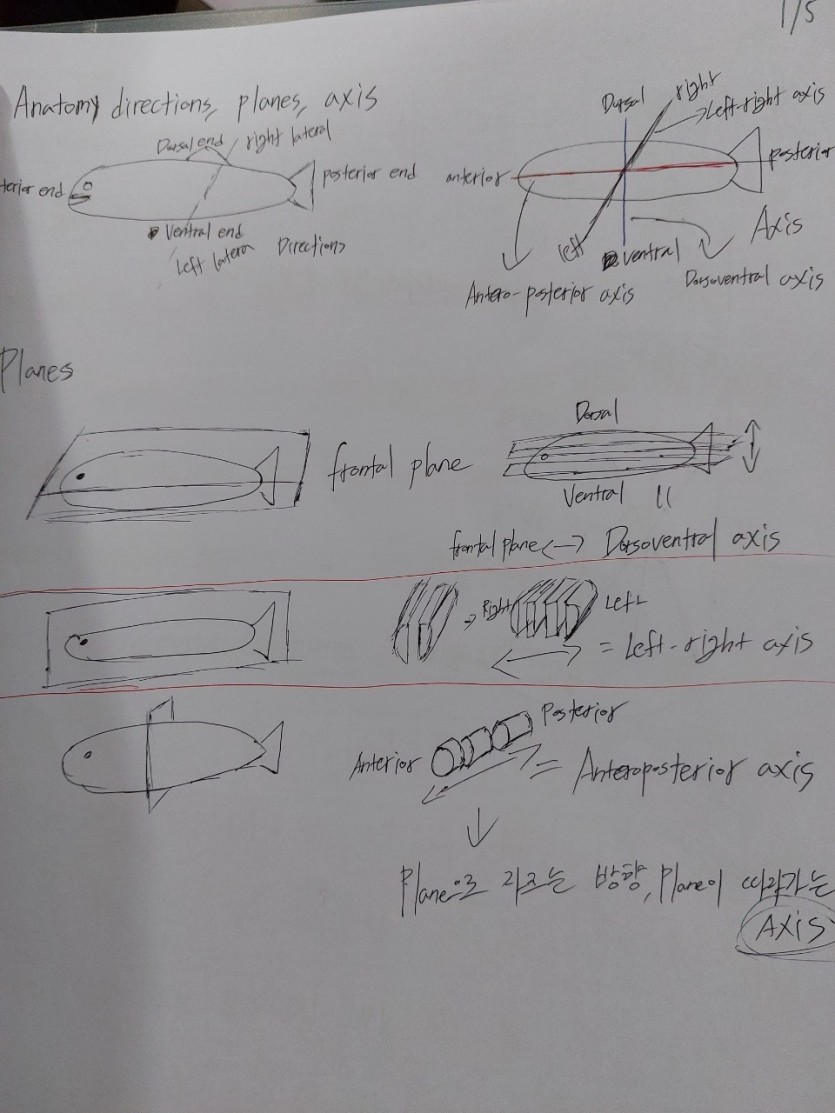 1/5
Anatomy directions, planes, axis
Dorsal end
right lateral
terior end
posterior end
Ventral end
Left latera
Directions
Dorsal
right
Left-right axis
anterior
posterior
left
ventral
Axis
Antero-posterior axis
Dorsoventral axis
Planes
frontal plane
Dorsal
Ventral
frontal plane <-> Dorsoventral axis
Right
Left
= Left-right axis
Anterior
Posterior
= Anteroposterior axis
Plane으로 자르는 방향, Plane이 따라가는
AXiS